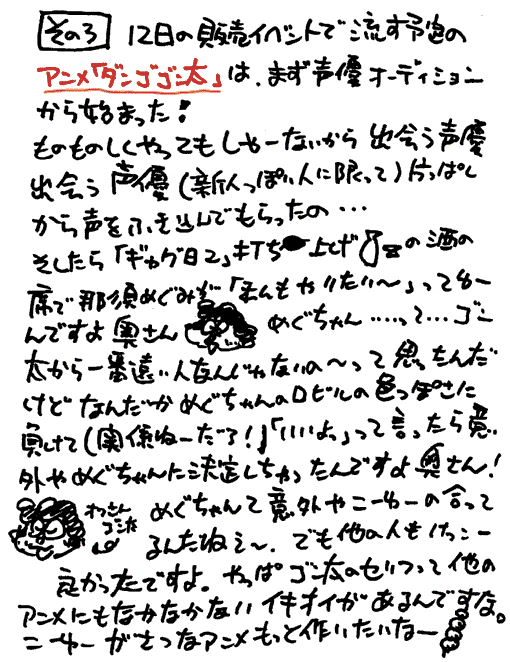 その3 12日の販売イベントで流す予定の
アニメ「ダンゴゴン太」は、まず声優オーディション
から始まった!
ものものしくやってもしゃーないから 出会う声優
出会う声優(新人っぽい人に限って)片っぱし
からか声をふき込んでもらったの…
そしたら「ギャグ日2」打ち上げの酒の
席で那須めぐみが「まんもやりたい〜」ってゆー
んですよ奥さん めぐちゃん……って…ゴン
太から一番遠い人なんじゃないの〜って思ったんだ
けど なんだかめぐちゃんのロビルの色っぽさに
負けて(関係ねーだろ!)「いいよっ」って言ったら意
外やめぐちゃんに決定しちゃったんですよ奥さん!
めぐちゃんて意外やこーゆーの合って
るんだねぇ〜。でも他の人もけっこー
良かったですよ。やっぱゴン太のセリフって他の
アニメにもなかなかないイキオイがあるんですな。
こーゆーがさつなアニメもっと作りたいなー